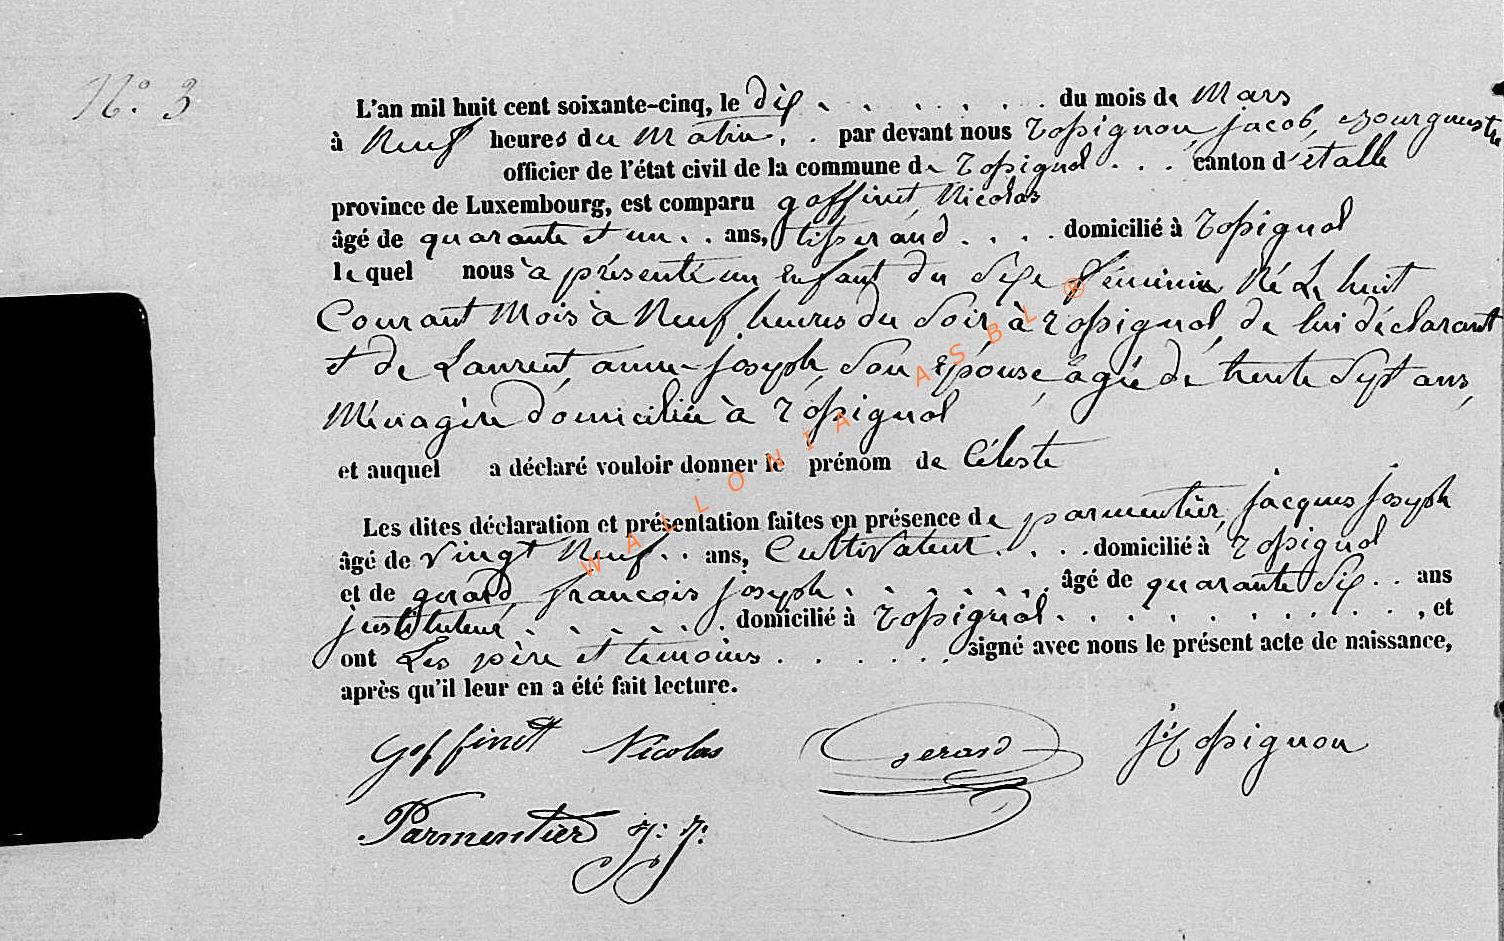 N.º 3
L'an mil huit cent soixante-cinq, le dix . . . . . . . du mois de Mars
à Neuf heures du Matin . . par devant nous Rossignon, jacob, Bourgmestre
officier de l'état civil de la commune de Rossignol . . . canton d'étalle
province de Luxembourg, est comparu goffinet, Nicolas
âgé de quarante et un . . ans, tisserand . . . . domicilié à Rossignol
le quel nous a présenté un enfant du Sexe féminin Né Le huit
Courant Mois à Neuf heures du Soir, à rossignol, de lui déclarant
et de Laurent, anne-joseph, Son épouse, agée de trente Sept ans,
Ménagère domiciliée à Rossignol
et auquel a déclaré vouloir donner le prénom de Céleste
Les dites déclaration et présentation faites en présence de parmentier, jacques joseph
âgé de vingt Neuf . . ans, Cultivateur . . . . domicilié à Rossignol
et de gerard, francois joseph . . . . . . . âgé de quarante Six . . ans
justituteur . . . . . . domicilié à Rossignol . . . . . . . . . . . , et
ont Les père et temoins . . . . . . signé avec nous le présent acte de naissance,
après qu'il leur en a été fait lecture.
Goffinet Nicolas Gerard J: Rossignon
Parmentier J: J:
WALLONIA ASBL ®